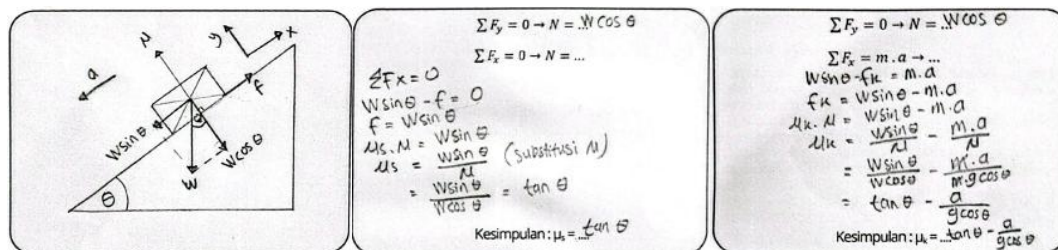 N
y
x
a
f
W sin θ
θ
W cos θ
W
θ
ΣFy = 0 → N = ...W cos θ
ΣFx = 0 → N = ...
ΣFx = 0
W sin θ - f = 0
f = W sin θ
μs . N = W sin θ
μs = W sin θ / N (substitusi N)
= W sin θ / W cos θ = tan θ
Kesimpulan : μs = ...tan θ
ΣFy = 0 → N = ...W cos θ
ΣFx = m.a → ...
W sin θ - fk = m.a
fk = W sin θ - m.a
μk . N = W sin θ - m.a
μk = W sin θ / N - m.a / N
= W sin θ / W cos θ - m.a / m.g cos θ
= tan θ - a / g cos θ
Kesimpulan : μs = ...tan θ - a / g cos θ